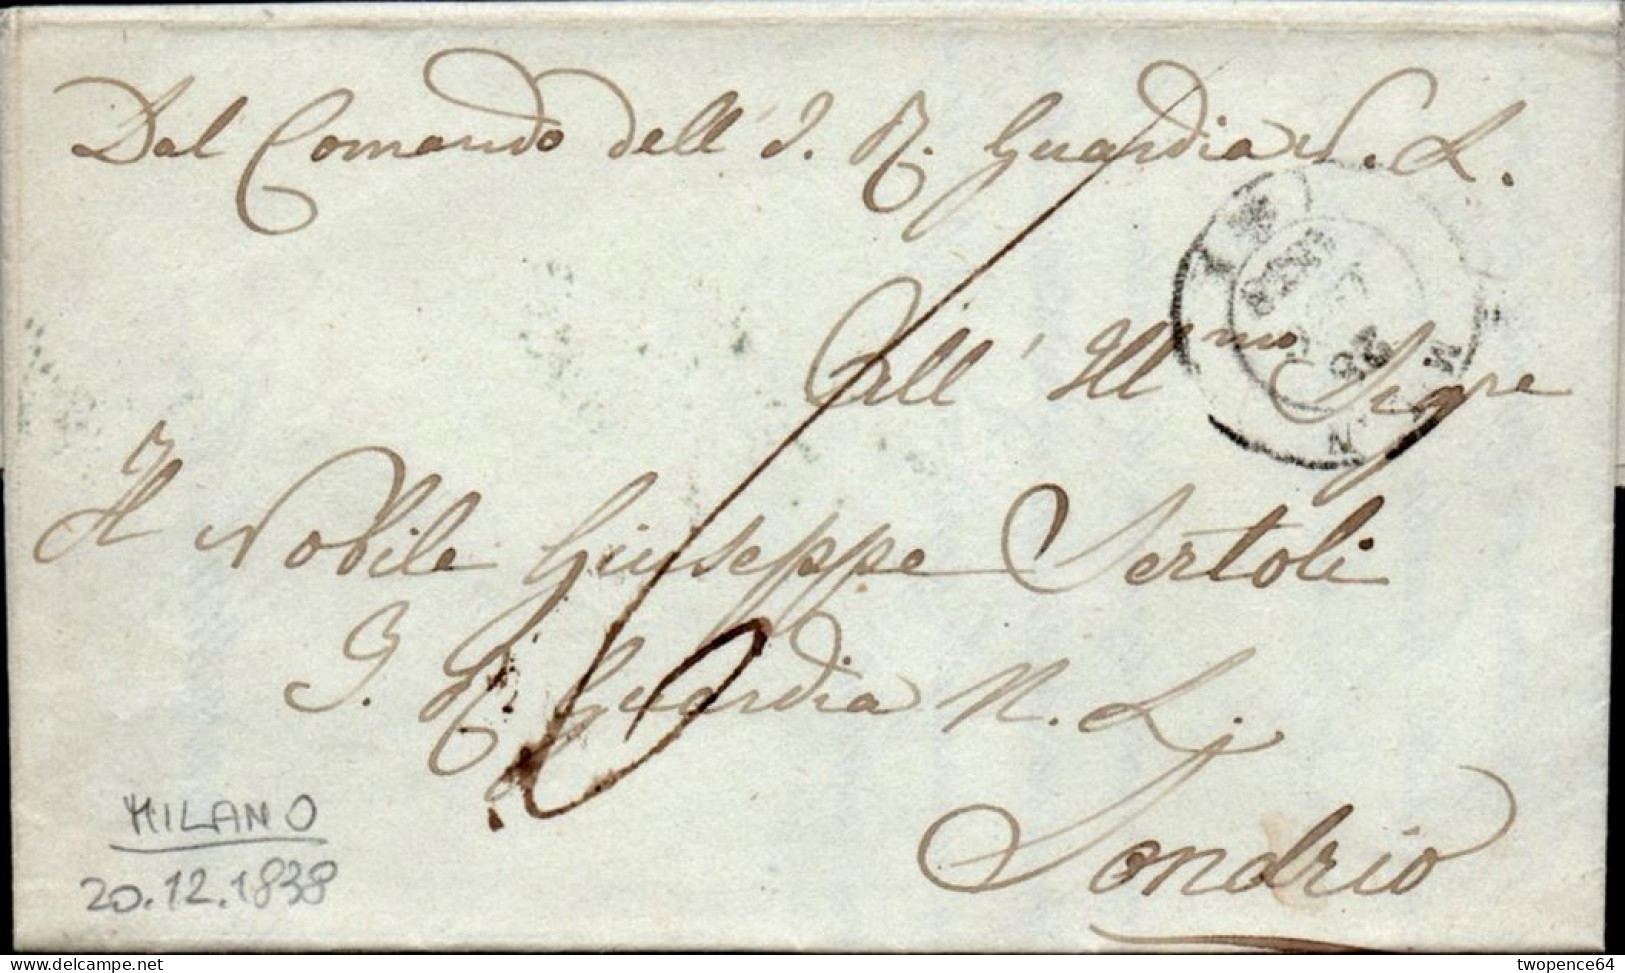 Dal Comando dell' I. R. Guardia N. L.
All' Ill.mo Sigre
Il Nobile Giuseppe Sertoli
I. R. Guardia N. L.
Sondrio
MILANO
20.12.1838
delcampe.net
twopence64